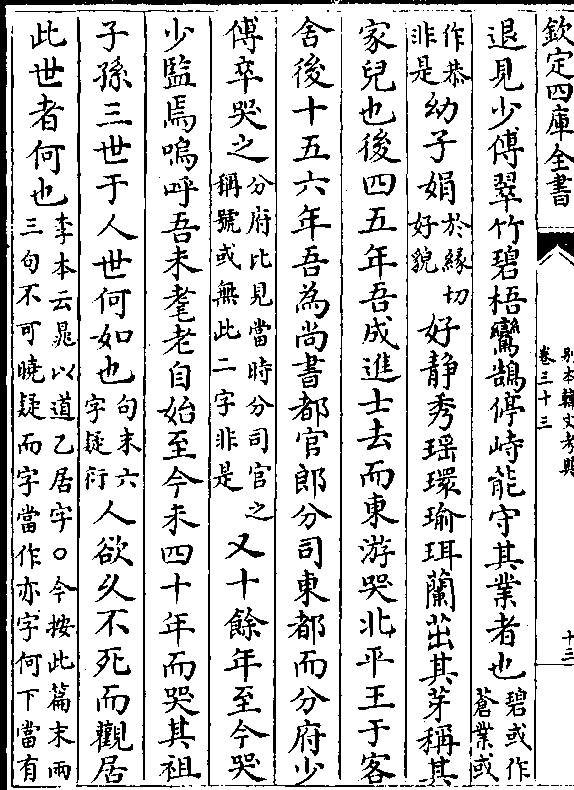 欽定四庫全書
別本韓文考異
卷三十三
十三
退見少傅翠竹碧梧鸞鵠停峙能守其業者也碧或作
蒼業或
作恭
非是幼子娟好靜秀瑶環瑜珥蘭茁其芽稱其
於緣切
好貌
家兒也後四五年吾成進士去而東游哭北平王于客
舍後十五六年吾為尚書都官郎分司東都而分府少
傅卒哭之分府比見當時分司官之
稱號或無此二字非是又十餘年至今哭
少監焉嗚呼吾未耄老自始至今未四十年而哭其祖
子孫三世于人世何如也句末六
字疑衍人欲久不死而觀居
此世者何也李本云晁以道乙居字○今按此篇末兩
三句不可曉疑而字當作亦字何下當有